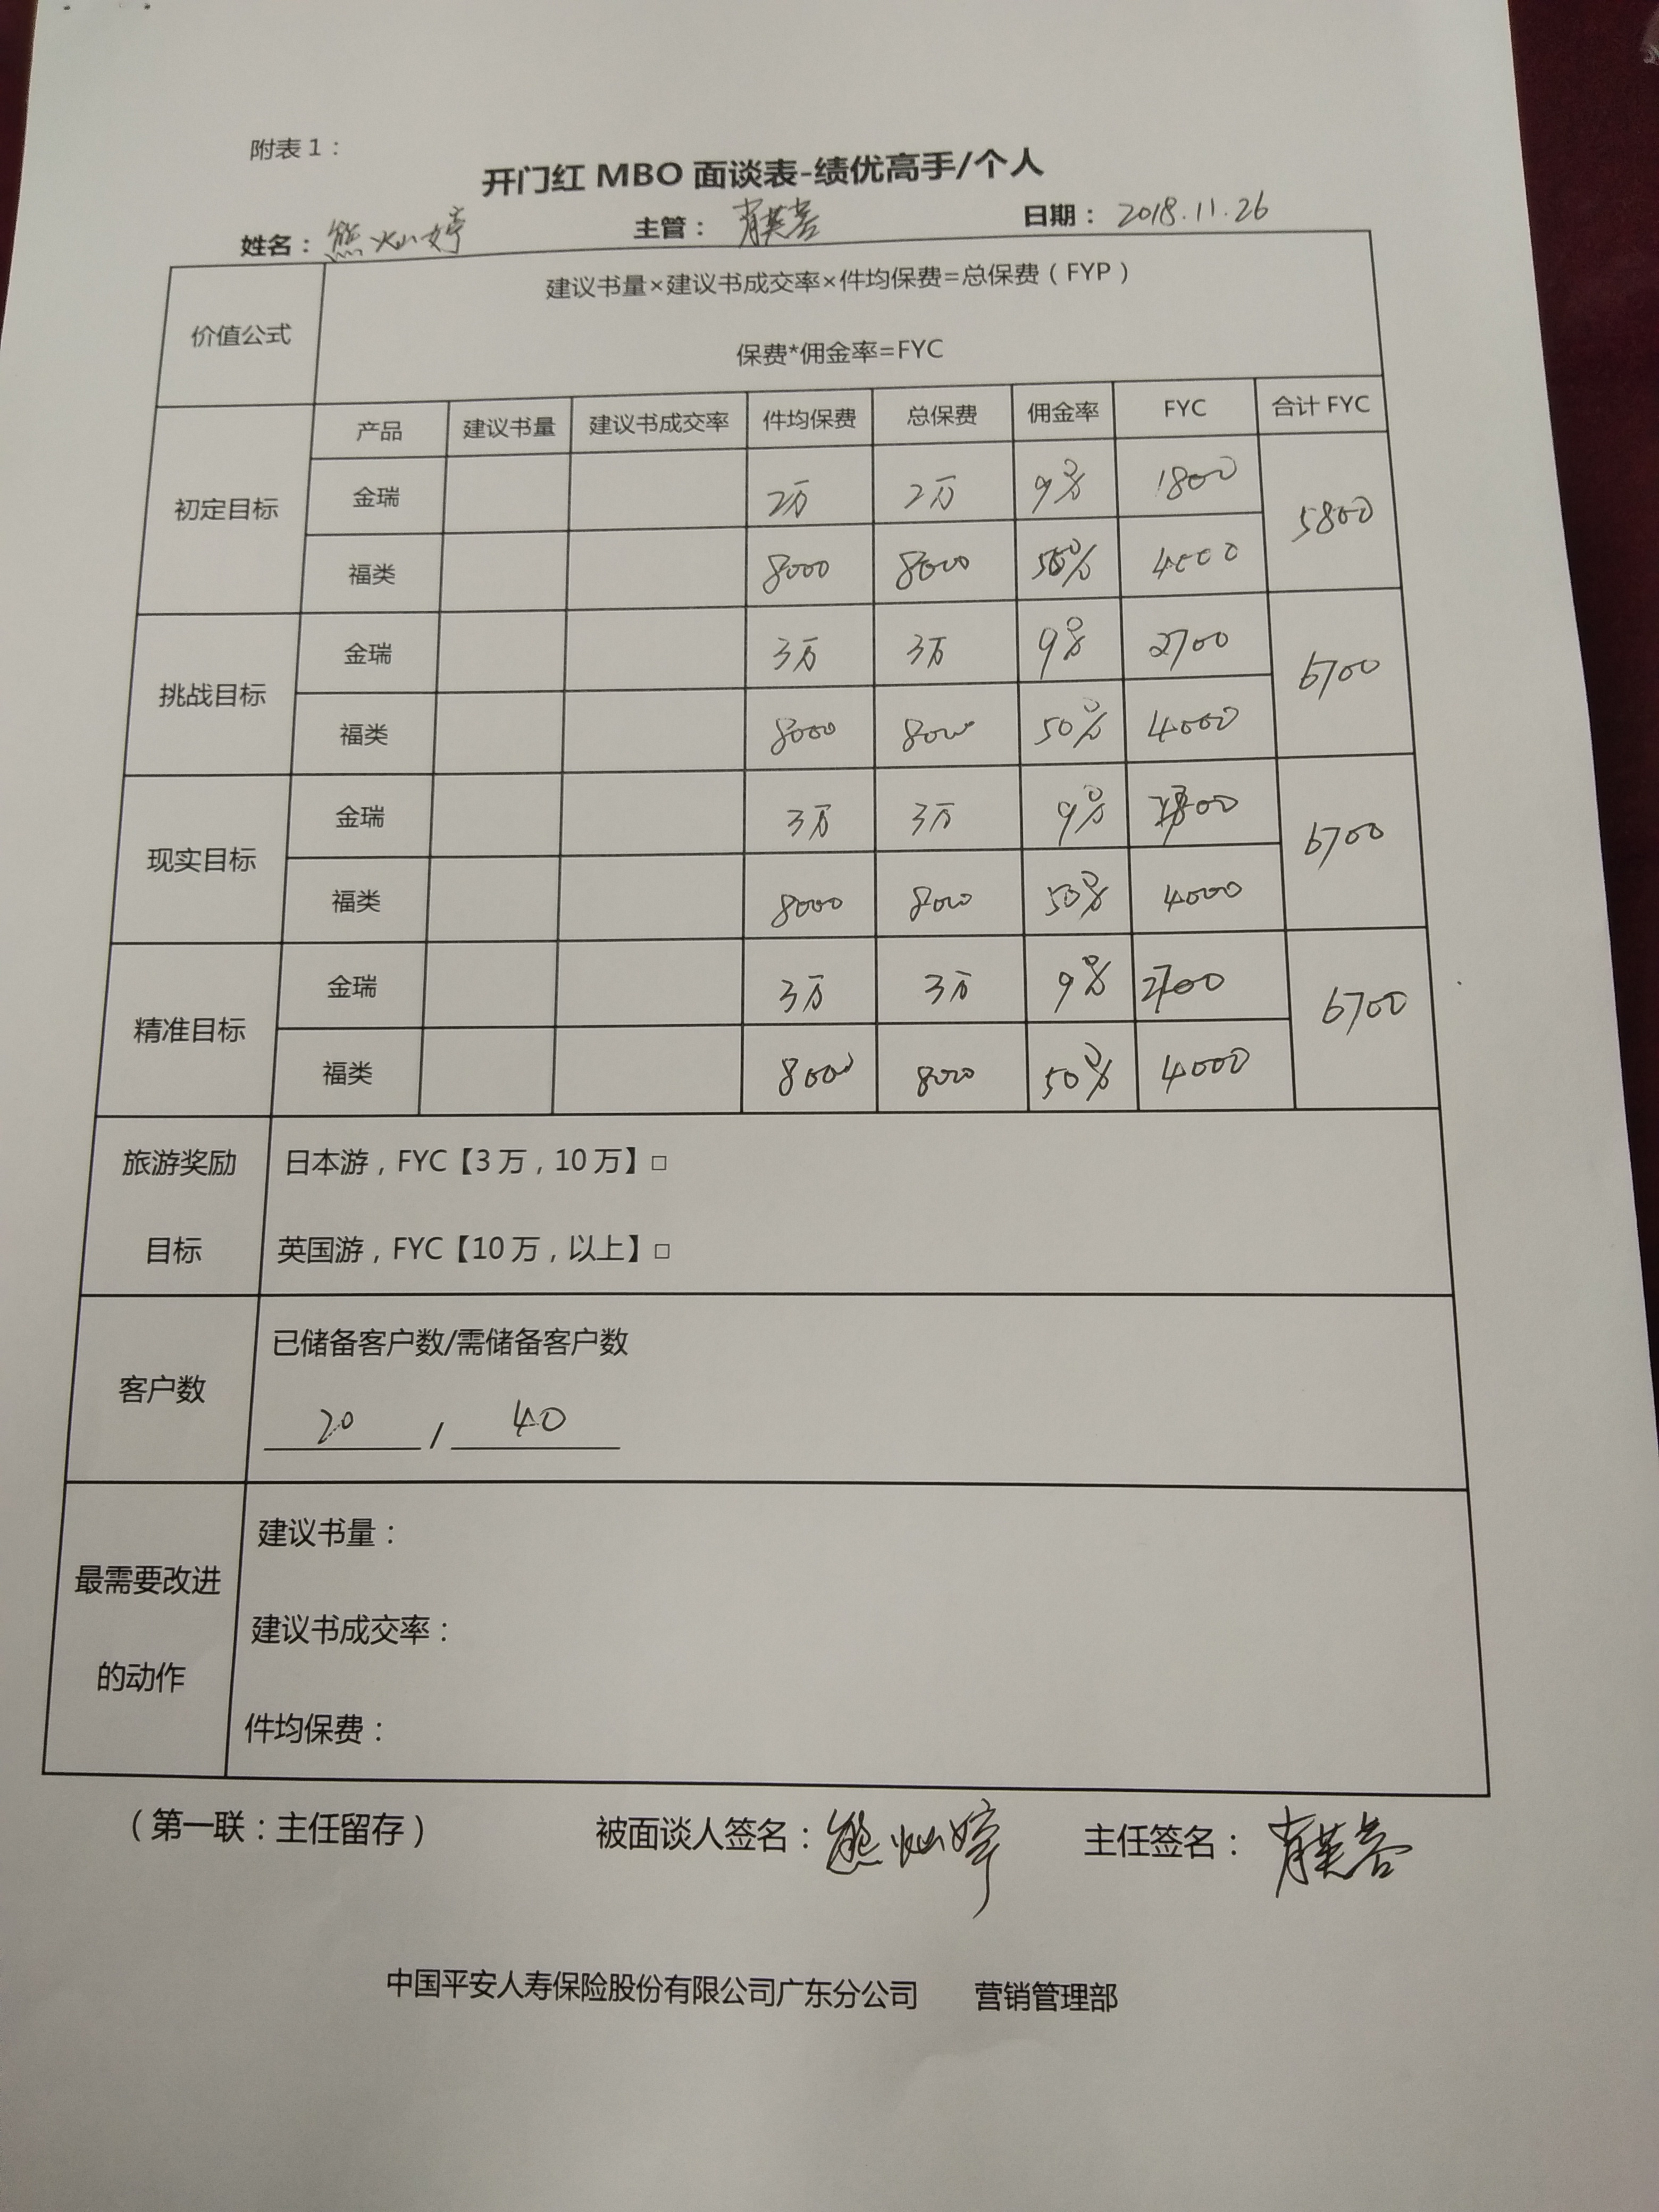 附表1：
开门红 MBO 面谈表-绩优高手/个人
姓名：熊灿婷 主管：肖芙蓉 日期：2018.11.26
价值公式 建议书量×建议书成交率×件均保费=总保费（FYP）
保费*佣金率=FYC
产品 建议书量 建议书成交率 件均保费 总保费 佣金率 FYC 合计 FYC
初定目标 金瑞 2万 2万 9% 1800 5800
福类 8000 8000 50% 4000
挑战目标 金瑞 3万 3万 9% 2700 6700
福类 8000 8000 50% 4000
现实目标 金瑞 3万 3万 9% 6700
福类 8000 8000 50% 4000
精准目标 金瑞 3万 3万 9% 2700 6700
福类 8000 8000 50% 4000
旅游奖励 日本游，FYC【3 万，10 万】□
目标 英国游，FYC【10 万，以上】□
客户数 已储备客户数/需储备客户数
20 / 40
最需要改进的动作 建议书量：
建议书成交率：
件均保费：
（第一联：主任留存） 被面谈人签名：熊灿婷 主任签名：肖芙蓉
中国平安人寿保险股份有限公司广东分公司 营销管理部